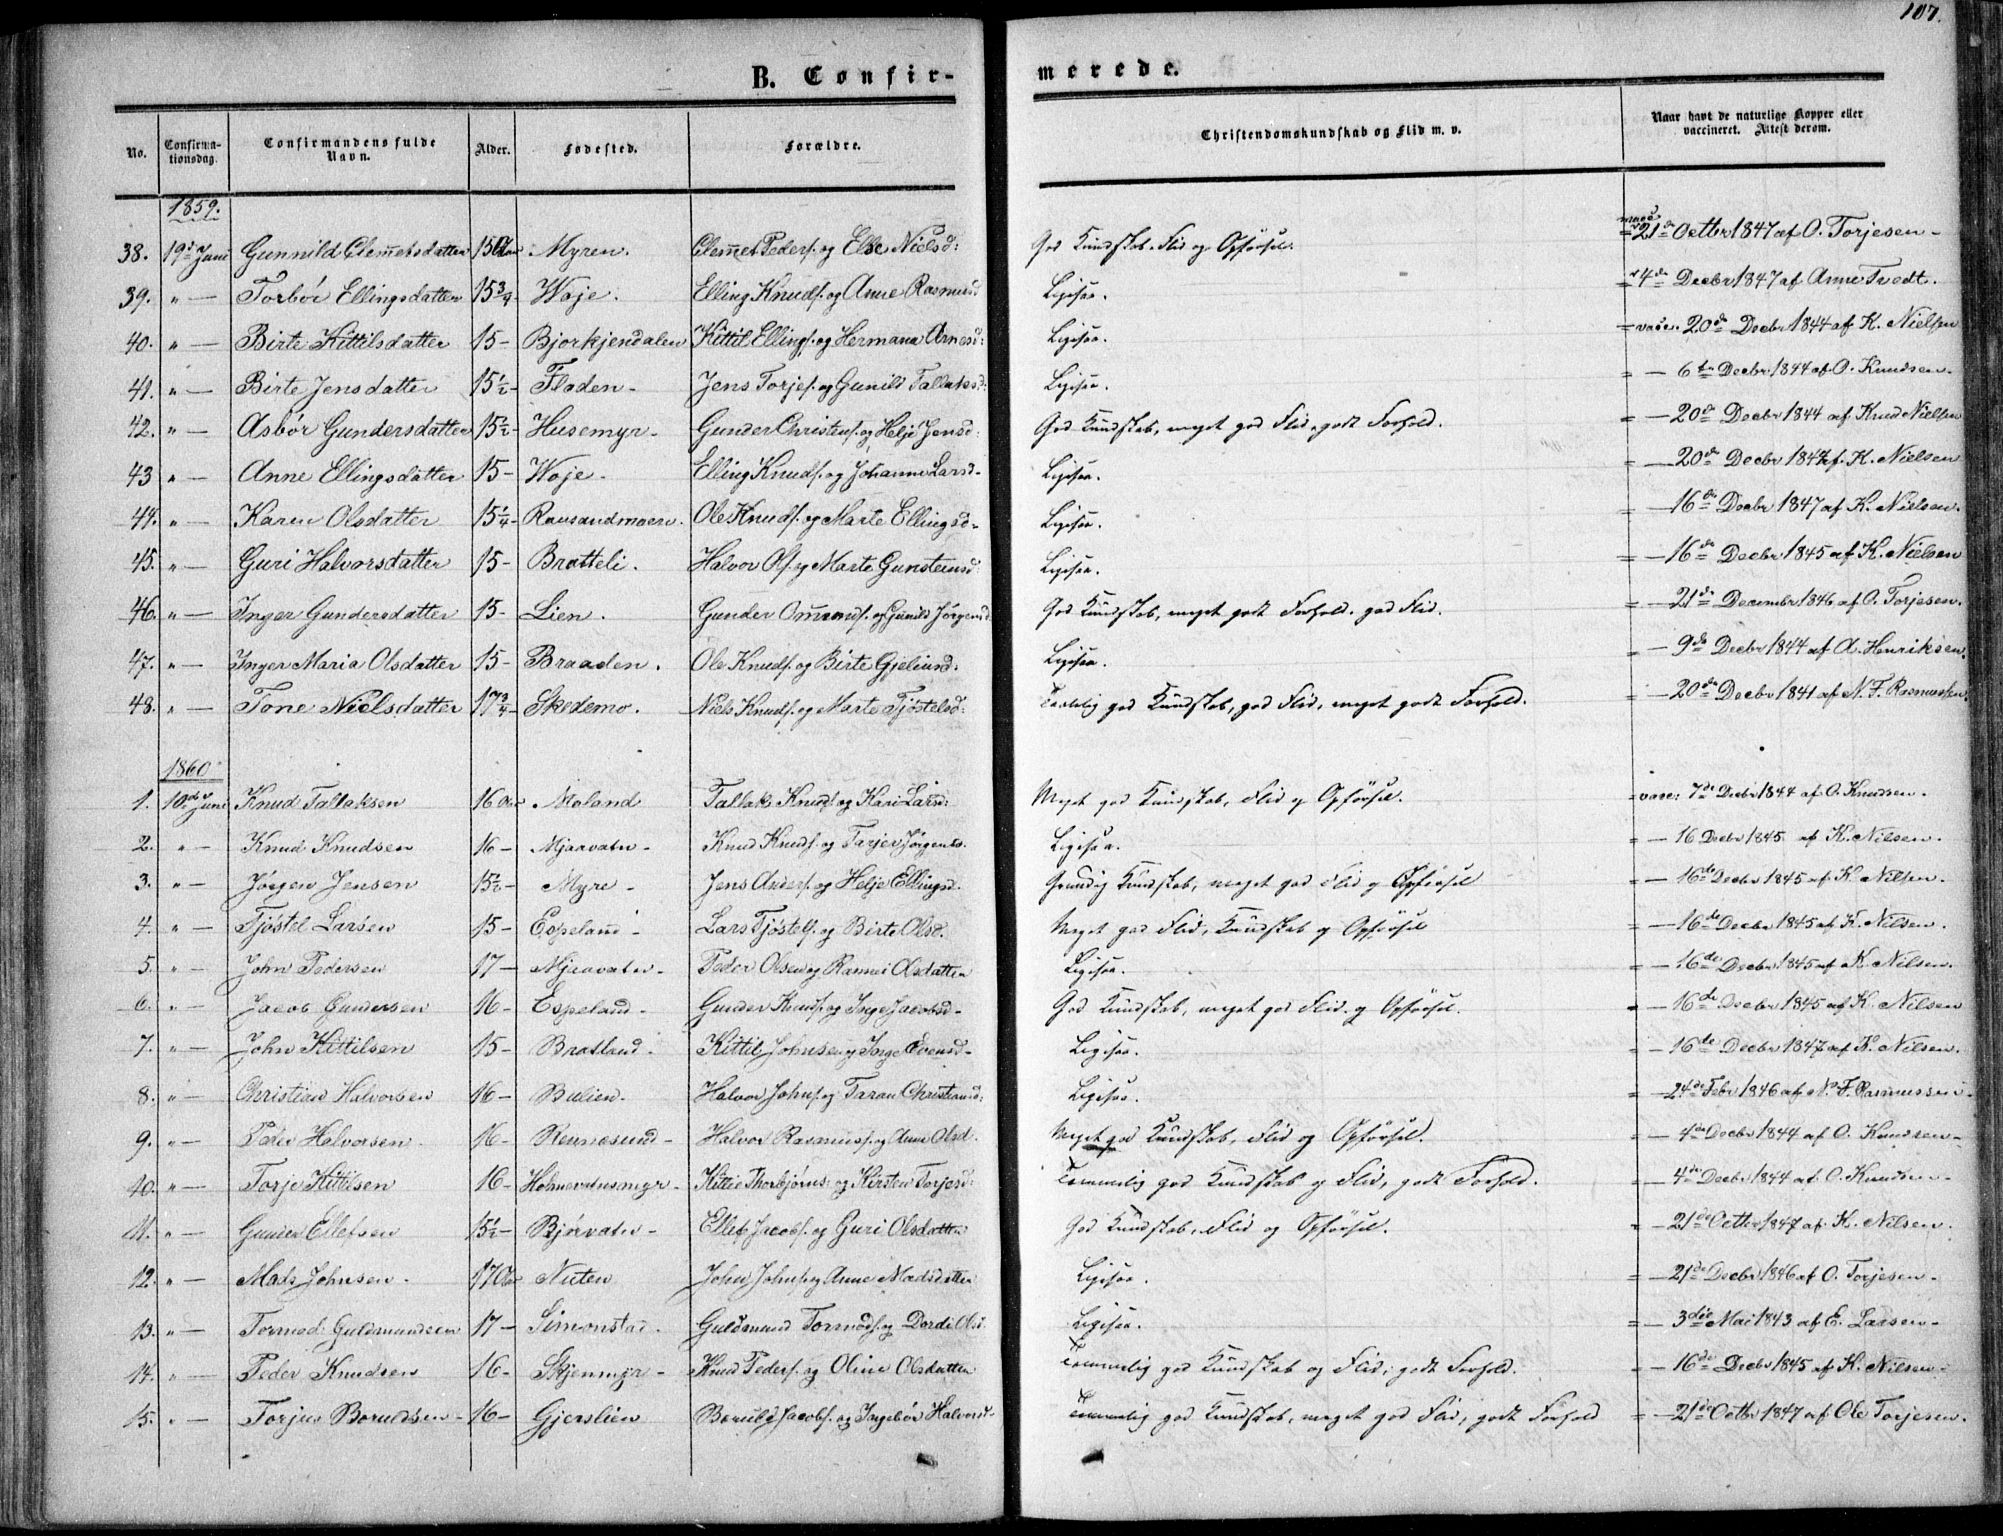 107.
B. Confir-
merede.
No. Confirma-tionsdag. Confirmandens fulde Navn. Alder. Fødested. Forældre. Christendomskundskab og Flid m. v. Naar havt de naturlige Kopper eller vaccineret. Attest derom.
1859.
38. 19de Juni Gunnild Clemetsdatter 15 Aar Myren. Clemet Peders. og Else Nielsd: God Kundskab. Flid og Opførsel. 21de Octbr 1847 af O. Torjesen -
39. " — Torbór Ellingsdatter 15¾ Woje. Elling Knuds. og Anne Rasmusd Ligesaa. 4de Decbr 1847 af Anne Tvedt.
40. " — Birte Kittilsdatter 15 - Bjorkjendalen Kittil Ellings. og Hermana Arnesd: Ligesaa. = vacc. 20de Decbr 1844 af K. Nielsen
41. " — Birte Jensdatter 15½ - Fladen - Jens Torjes. og Gunild Tallaksd: Ligesaa. = — 6te Decbr 1844 af O. Knudsen.
42. " — Asbór Gundersdatter 15½ - Husemyr - Gunder Christens. og Helje Jensd: God Kundskab, meget god Flid, godt Forhold. = — 20de Decbr 1844 af Knud Nielsen
43 " — Anne Ellingsdatter 15 - Woje - Elling Knuds. og Johanne Larsd - Ligesaa. = — 20de Decbr 1847 af K. Nielsen
44. " — Karen Olsdatter 15¼ - Rausandmoen. Ole Knuds. og Marte Ellingsd - Ligesaa. = — 16de Decbr 1847 af K. Nielsen.
45. " — Guri Halvorsdatter 15 - Bratteli. Halvor Ols. og Marte Gunsteinsd: Ligesaa. = — 16de Decbr 1845 af K. Nielsen
46. " — Inger Gundersdatter 15 - Lien. Gunder Omunds. og Gunild Jørgensd God Kundskab, meget godt Forhold. god Flid. = — 21de Decembr 1846 af O. Torjesen.
47. " — Inger Maria Olsdatter 15 - Braaden. Ole Knuds. og Birte Gjeliusd: Ligesaa. — 9de Decbr 1844 af A. Henriksen.
48. " — Tone Nielsdatter 17¾ - Skedemo. Niels Knuds. og Marte Tjöstelsd: Temlig god Kundskab, god Flid, meget godt Forhold. — 20de Decbr 1841 af N. F. Rasmussen
1860
1. 10de Juni Knud Tallaksen 16 Aar Moland Tallak Knuds. og Kari Larsd: Meget god Kundskab, Flid og Opførsel. = vacc: 7de Decbr 1844 af O. Knudsen.
2. " — Knud Knudsen 16 - Mjaavatn - Knud Knuds. og Tarjer Jørgensd. Ligesaa. = — 16 Decbr 1845 af K. Nilsen.
3. " — Jörgen Jensen 15½ - Myre - Jens Anders. og Helje Ellingsd. Grundig Kundskab, meget god Flid og Opførsel = — 16de Decbr 1845 af K. Nilsen.
4. " — Tjöstel Larsen 15 - Espeland - Lars Tjöstels. og Birte Olsd. Meget god Flid, Kundskab og Opførsel = — 16de Decbr 1845 af K. Nilsen.
5. " — John Pedersen 17 - Mjaavatn - Peder Olsen og Rannei Olsdatter Ligesaa. = — 16de Decbr 1845 af K. Nilsen.
6. " — Jacob Gundersen 16 - Espeland - Gunder Knuds. og Inge Jacobsd - God Kundskab, meget god Flid og Opførsel. = — 16de Decbr 1845 af K. Nilsen
7. " — John Kittilsen 15 - Bratland - Kittil Johnsen og Inge Evensd - Ligesaa. = — 16de Decbr 1847 af K. Nilsen.
8. " — Christian Halvorsen 16 - Bulien. Halvor Johns. og Taran Christiansd: Ligesaa. = — 24de Febr 1846 af N. F. Rasmussen.
9. " — Peder Halvorsen 16 - Rennesund - Halvor Rasmus. og Anne Olsd. Meget god Kundskab, Flid og Opførsel. = — 4de Decbr 1844 af O. Knudsen -
10. " — Torje Kittilsen 16 - Holmevatnsmyr - Kittil Thorbjørns: og Kirsten Torjesd: Temmelig god Kundskab og Flid, godt Forhold. = — 4de Decbr 1844 af O. Knudsen -
11. " — Gunder Ellefsen 15½ - Bjórvatn - Ellef Jacobs. og Guri Olsdatter God Kundskab, Flid og Opførsel. = — 21de Octbr 1847 af K. Nilsen.
12. " — Mads Johnsen. 17 Aar Nuten John Johns. og Anne Madsdatter Ligesaa. = — 21de Decbr 1846 af O. Torjesen -
13. " — Tormod Guldmundsen 17 - Simonstad. Guldmund Tormods. og Dorde Olsd. Ligesaa. = — 3die Mai 1843 af E. Larsen -
14. " — Peder Knudsen 16 - Skjenmyr - Knud Peders. og Oline Olsdatter Temmelig god Kundskab og Flid, godt Forhold. = — 16de Decbr 1845 af K. Nilsen -
15. " — Torjus Borulsen - 16 - Gjerslien Borul Jacobs. og Ingebór Halvorsd - Temmelig god Kundskab, meget god Flid, godt Forhold = — 21de Octbr 1847 af Ole Torjesen.